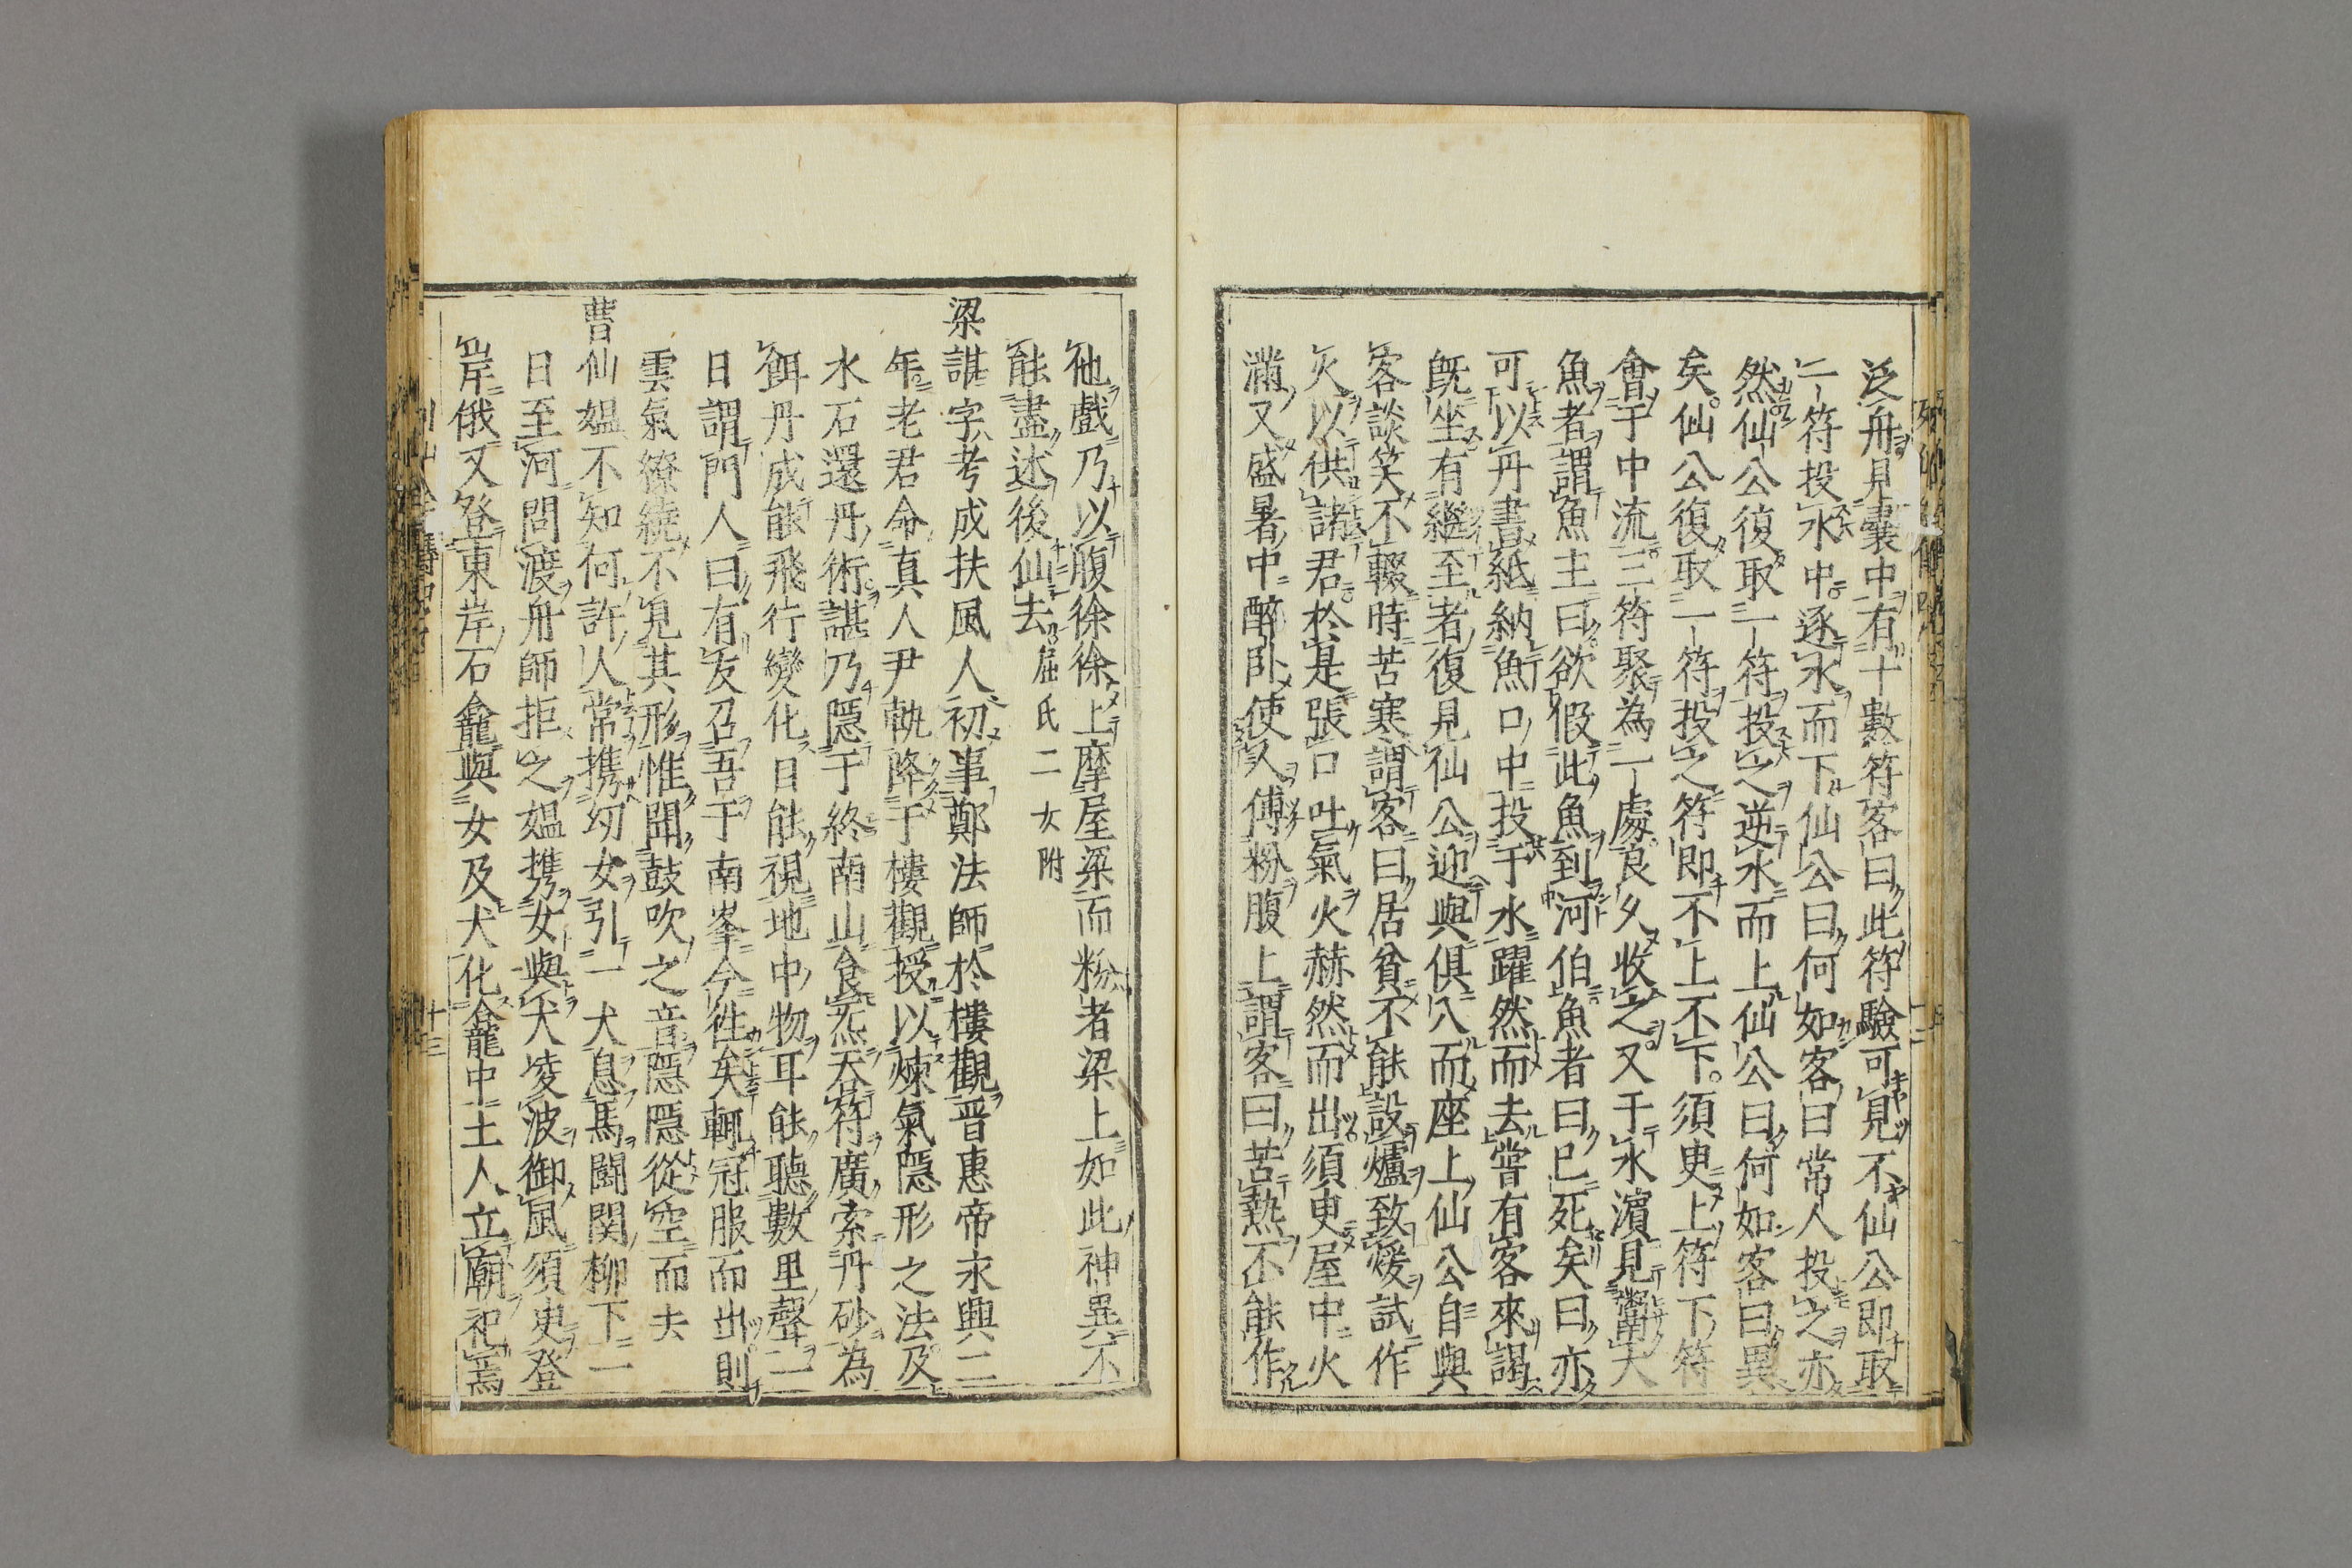 泛舟見囊中有十數符客曰此符驗可見不仙公即取
一符投水中逐水而下仙公曰何如客曰常人投之亦
然仙公復取一符投之逆水而上仙公曰何如客曰異
矣仙公復取一符投之符即不上不下須臾上符下下符
會于中流三符聚為一處良久收之又于水濱見鬻大
魚者謂魚主曰欲假此魚到河伯魚者曰已死矣曰亦
可以丹書紙納魚口中投于水躍然而去嘗有客來謁
既坐有繼至者復見仙公迎與俱入而座上仙公自與
客談笑不輟時苦寒謂客曰居貧不能設爐致煖試作
火以供諸君於是張口吐氣火赫然而出須臾屋中火
滿又盛暑中醉卧使人傅粉腹上謂客曰苦熱不能作
他戲乃以腹徐徐上摩屋梁而粉著梁上如此神異不
能盡述後仙去屈氏二女附
梁諶字考成扶風人初事鄭法師於樓觀晉惠帝永興二
年老君命真人尹軌降于樓觀授以煉氣隱形之法及
水石還丹術諶乃隱于終南山食炁吞符廣索丹砂為
餌丹成能飛行變化日能視地中物耳能聽數里聲一
日謂門人曰有友召吾于南峯今徃矣輒冠服而出則
雲氣繚繞不見其形惟聞鼓吹之音隱隱從空而去
曹仙媼不知何許人常携幼女引一犬息馬鬬関柳下一
日至河問渡舟師拒之媼携女與犬凌波御風須臾登
岸俄又登東岸石龕與女及犬化龕中土人立廟祀焉
十三